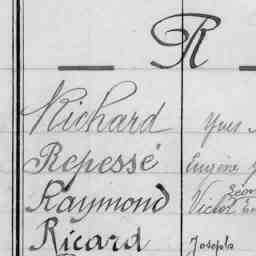 R
Richard Yves
Repessé Eugène
Raymond Victor
Ricard Joseph